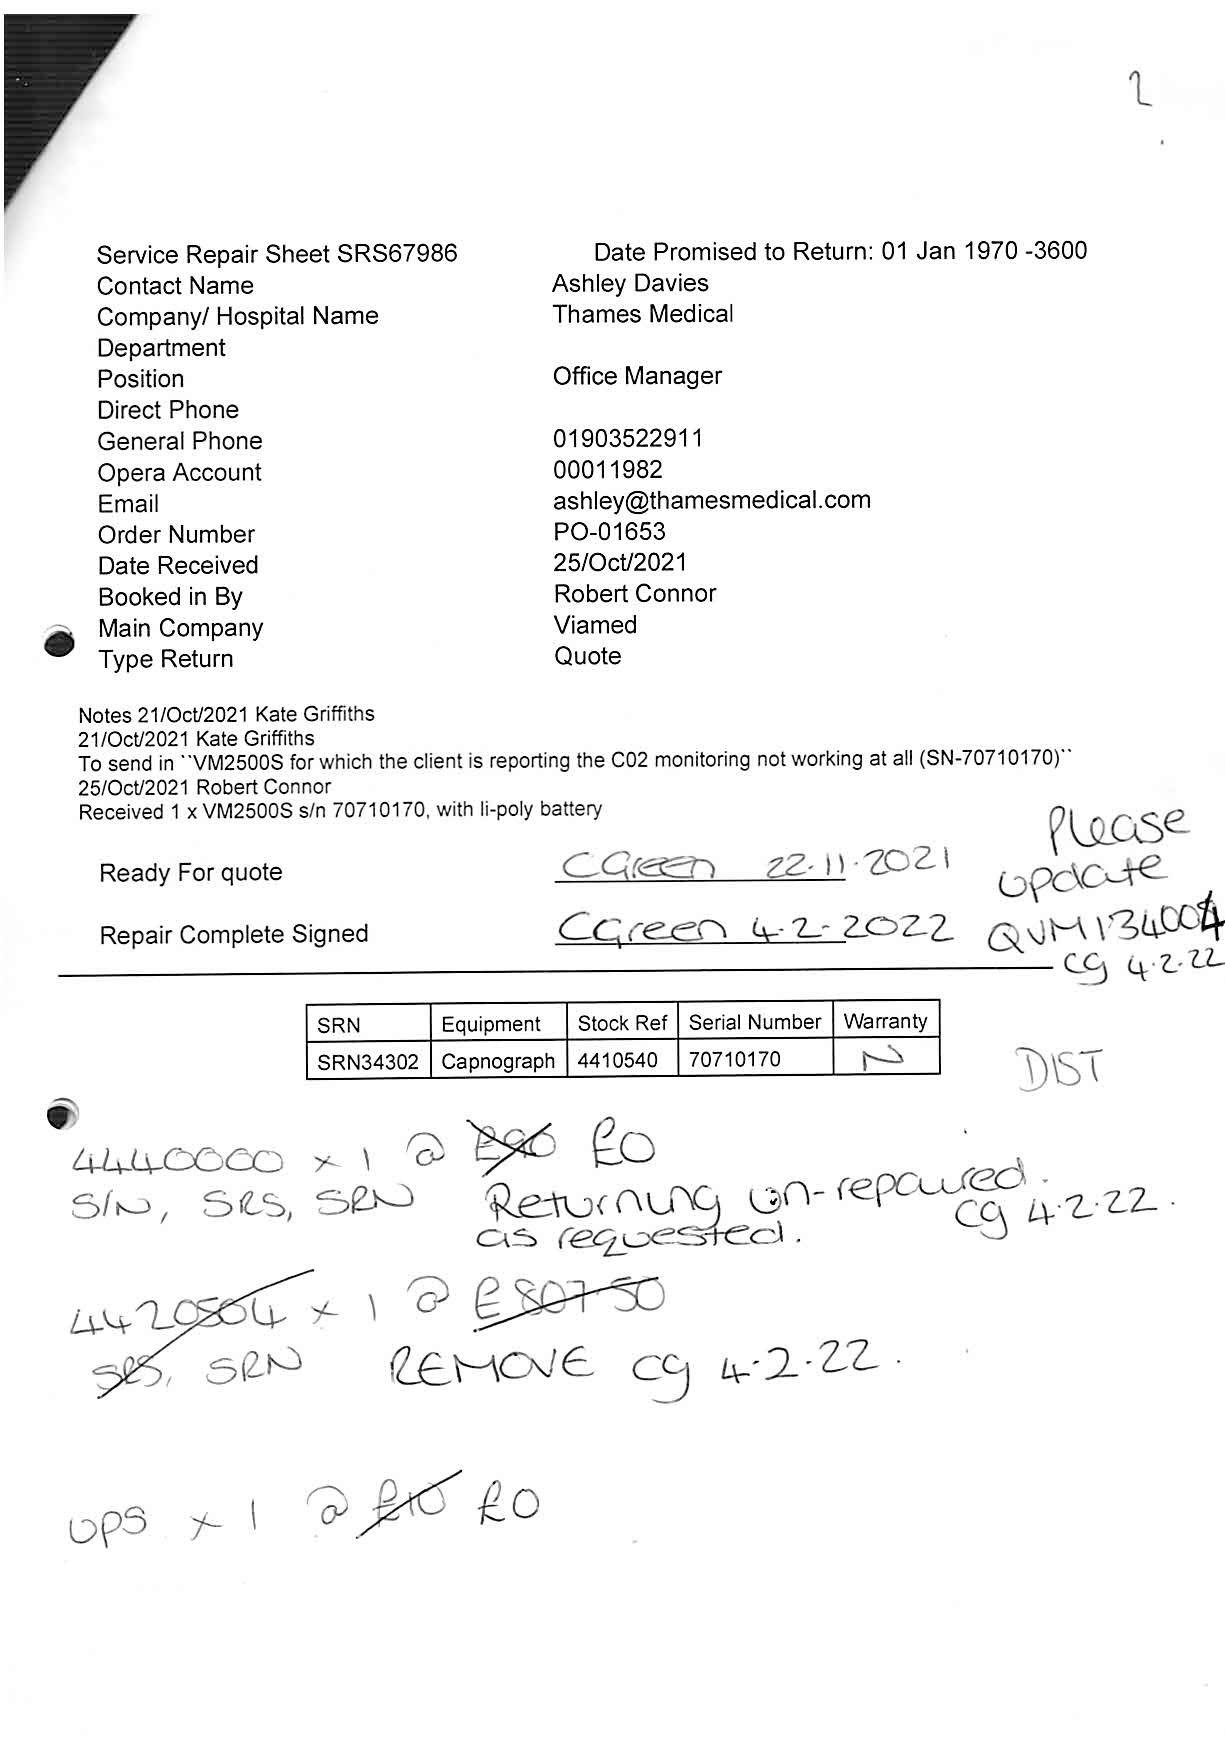 2
Service Repair Sheet SRS67986 Date Promised to Return: 01 Jan 1970 -3600
Contact Name Ashley Davies
Company/ Hospital Name Thames Medical
Department
Position Office Manager
Direct Phone
General Phone 01903522911
Opera Account 00011982
Email ashley@thamesmedical.com
Order Number PO-01653
Date Received 25/Oct/2021
Booked in By Robert Connor
Main Company Viamed
Type Return Quote
Notes 21/Oct/2021 Kate Griffiths
21/Oct/2021 Kate Griffiths
To send in ``VM2500S for which the client is reporting the C02 monitoring not working at all (SN-70710170)``
25/Oct/2021 Robert Connor
Received 1 x VM2500S s/n 70710170, with li-poly battery
Please
update
QVM134004
cg 4.2.22
Ready For quote CGreen 22.11.2021
Repair Complete Signed CGreen 4.2.2022
SRN Equipment Stock Ref Serial Number Warranty
SRN34302 Capnograph 4410540 70710170 N
DIST
4440000 x 1 @ £90 £0
S/N, SRS, SRN Returning un-repaired.
as requested. cg 4.2.22.
4420504 x 1 @ £807.50
SRS, SRN REMOVE cg 4.2.22.
UPS x 1 @ £10 £0